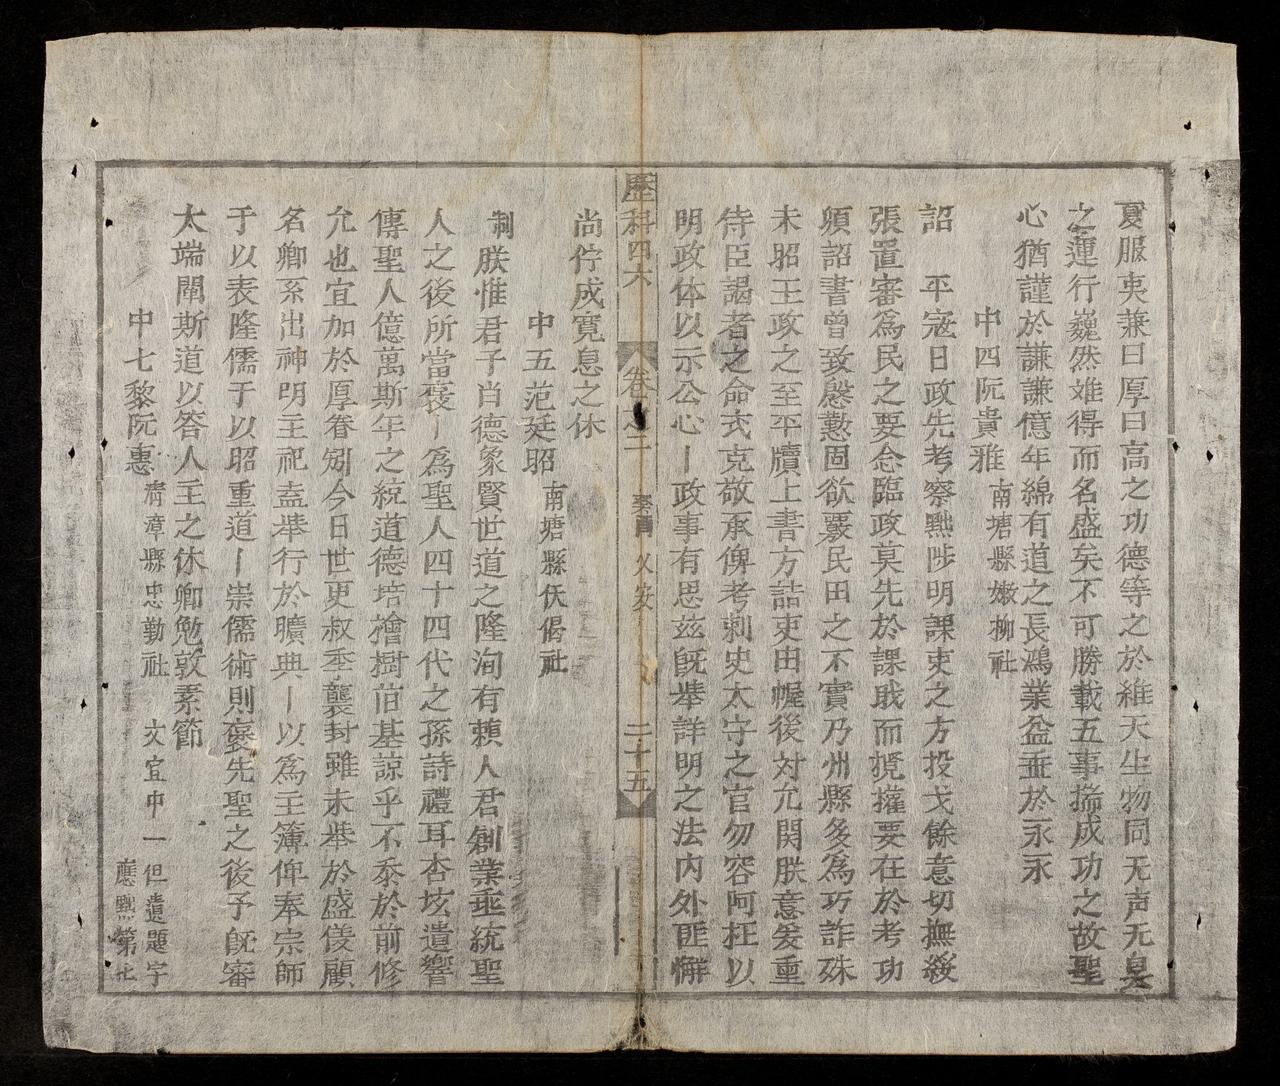 夏服夷兼曰厚曰高之功德等之於維天生物同无声无臭
之運行巍然难得而名盛矣不可勝載五事揣成功之故聖
心猶謹於謙謙億年綿有道之長鴻業益垂於永永
中四阮貴雅 南塘縣嫩柳社
詔 平寇日政先考察黜陟明課吏之方投戈餘意切撫綏
張置審爲民之要念臨政莫先於課我而攬攉要在於考功
頒詔書曾致慇懃固欲覈民田之不實乃州縣多爲巧詐殊
未昭王政之至平牘上書方詰吏由幄後対允関朕意爰重
侍臣謁者之命式克敬承俾考刺史太守之官勿容阿枉以
明政体以示公心〡政事有思兹既举詳明之法内外匪懈
歷科四六 卷之二 二十五
尚佇成寛息之休
中五范廷昭 南塘縣仸偈社
制朕惟君子肖德象賢世道之隆洵有頼人君創業垂統聖
人之後所當褒〡爲聖人四十四代之孫詩禮耳杏垓遺響
傳聖人億萬斯年之統道德培檜樹苗基諒乎不忝於前修
允也宜加於厚眷矧今日世更叔季襲封雖未举於盛儀顧
名卿系出神明主祀盍举行於曠典〡以爲主簿俾奉宗師
于以表隆儒于以昭重道〡崇儒術則褒先聖之後予既審
太端闡斯道以答人主之休卿勉敦素節
中七黎阮惠 清漳縣忠勤社 文宜中一但遺題字應黜第七